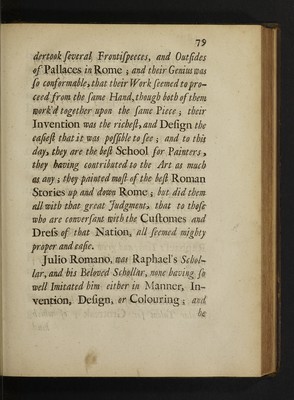 79
dertook ſeveral Frontiſpeeces, and Outſides
of Pallaces in Rome ; and their Genius was
ſo conformable, that their Work ſeemed to pro-
ceed from the ſame Hand, though both of them
work'd together upon the ſame Piece ; their
Invention was the richeſt, and Deſign the
eaſieſt that it was poſſible to ſee ; and to this
day, they are the beſt School for Painters,
they having contributed to the Art as much
as any ; they painted moſt of the beſt Roman
Stories up and down Rome ; but did them
all with that great Judgment, that to thoſe
who are converſant with the Cuſtomes and
Dreſs of that Nation, all ſeemed mighty
proper and eaſie.
Julio Romano, was Raphael's Schol-
lar, and his Beloved Schollar, none having ſo
well Imitated him either in Manner, In-
vention, Deſign, or Colouring ; and
he